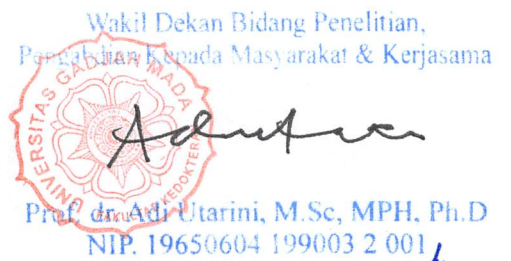 Wakil Dekan Bidang Penelitian,
Pengabdian Kepada Masyarakat & Kerjasama
UNIVERSITAS GADJAH MADA
FAKULTAS KEDOKTERAN
Prof. dr. Adi Utarini, M.Sc, MPH, Ph.D
NIP. 19650604 199003 2 001